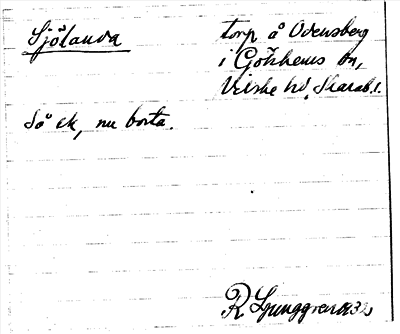 Sjölanda
torp å Odensberg
i Gökhems sn,
Vilske hd, Skarab. l.
Så ek, nu borta.
R Ljunggren 1932